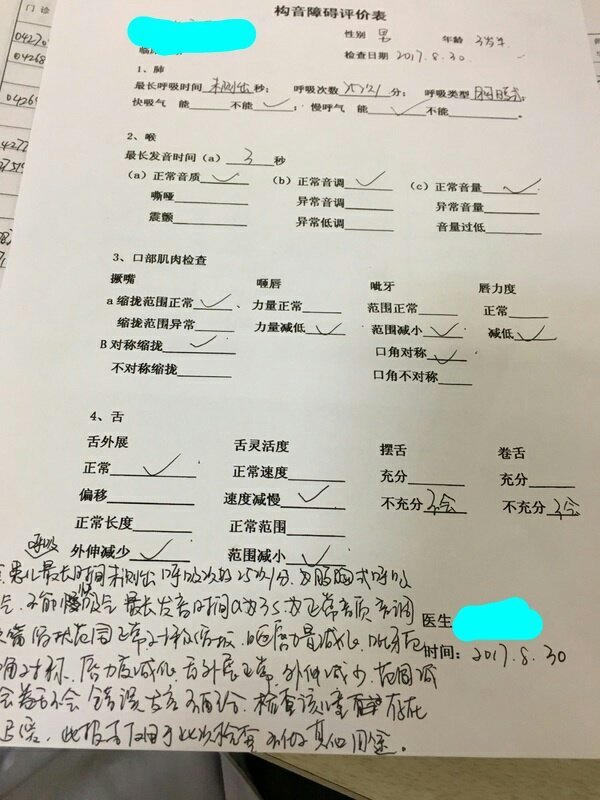 门诊
构音障碍评价表
性别 男 年龄
临床
检查日期 2017.8.30.
1、肺
最长呼吸时间 未测出 秒; 呼吸次数 25次/ 分; 呼吸类型
快吸气 能 不能 ✓; 慢呼气 能 ✓ 不能 。
2、喉
最长发音时间（a） 3 秒
(a) 正常音质 ✓ (b) 正常音调 ✓ (c) 正常音量 ✓
嘶哑 异常音调 异常音量
震颤 异常低调 音量过低
3、口部肌肉检查
撅嘴 咂唇 呲牙 唇力度
a 缩拢范围正常 ✓ 、力量正常 范围正常 正常
缩拢范围异常 力量减低 ✓ 范围减小 ✓ 减低 ✓
B 对称缩拢 ✓ 口角对称 ✓
不对称缩拢 口角不对称
4、舌
舌外展 舌灵活度 摆舌 卷舌
正常 ✓ 正常速度 充分 充分
偏移 速度减慢 ✓ 不充分 不会 不充分 不会
正常长度 正常范围
外伸减少 ✓ 范围减小 ✓
呼吸
患儿最长时间未测出 呼吸次数25次/分 为胸腹式呼吸
最长发音时间a为3s 为正常音质音调
医生
范围正常 对称缩拢 咂唇力量减低 呲牙范
时间: 2017.8.30
对称. 唇力度减低 舌外展正常. 外伸减少. 范围减
不会 错误发音 检查该儿童 存在
此报告仅用于此次检查 不做其他用途。